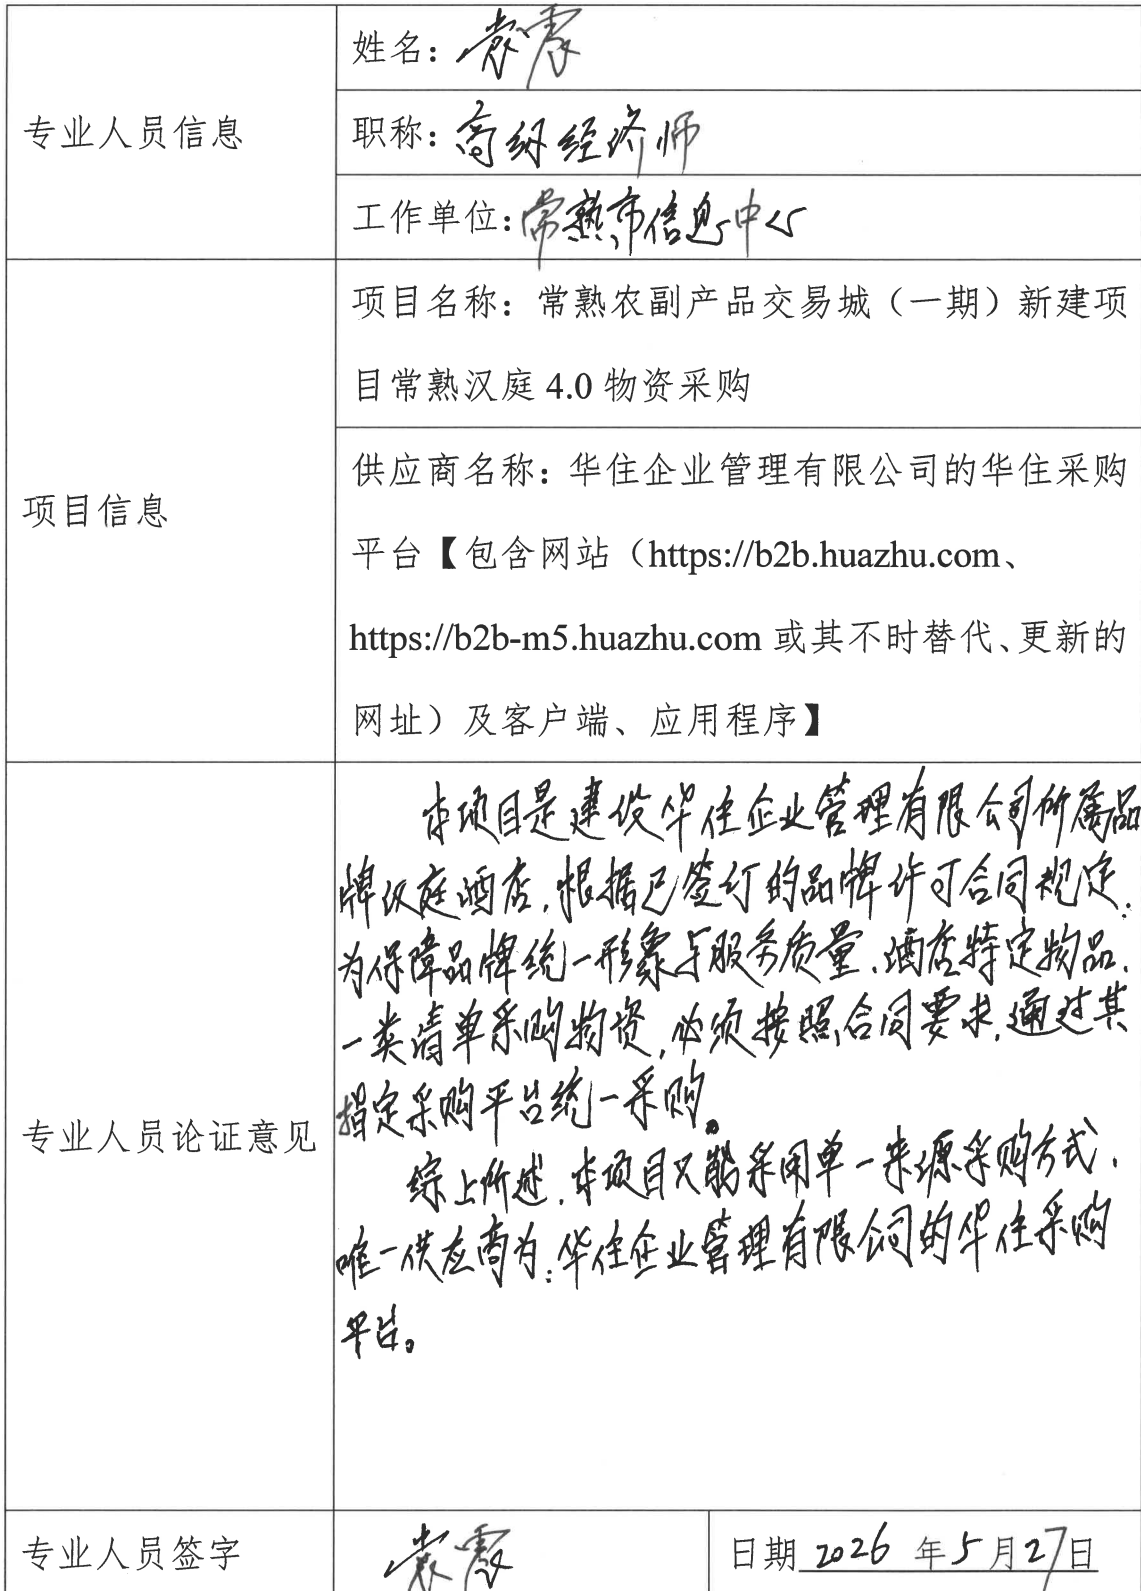 专业人员信息
姓名：袁震
职称：高级经济师
工作单位：常熟市信息中心
项目信息
项目名称：常熟农副产品交易城（一期）新建项
目常熟汉庭 4.0 物资采购
供应商名称：华住企业管理有限公司的华住采购
平台【包含网站（https://b2b.huazhu.com、
https://b2b-m5.huazhu.com 或其不时替代、更新的
网址）及客户端、应用程序】
专业人员论证意见
本项目是建设华住企业管理有限公司所属品
牌汉庭酒店，根据已签订的品牌许可合同规定：
为保障品牌统一形象与服务质量，酒店特定物品，
一类清单采购物资，必须按照合同要求，通过其
指定采购平台统一采购。
综上所述，本项目只能采用单一来源采购方式，
唯一供应商为：华住企业管理有限公司的华住采购
平台。
专业人员签字
袁震
日期 2026 年 5 月 27 日